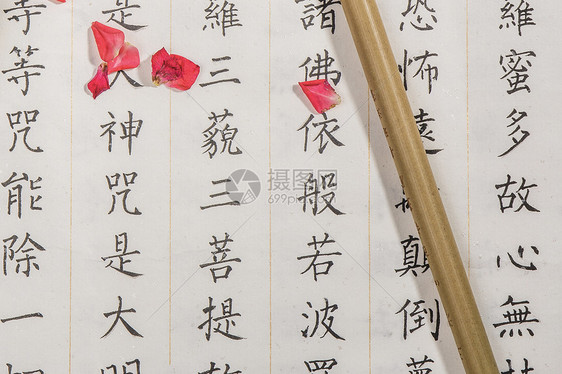 羅蜜多故心無
恐怖遠顛倒夢
諸佛依般若波羅
羅三藐三菩提
是大神咒是大明
等等咒能除一切
摄图网